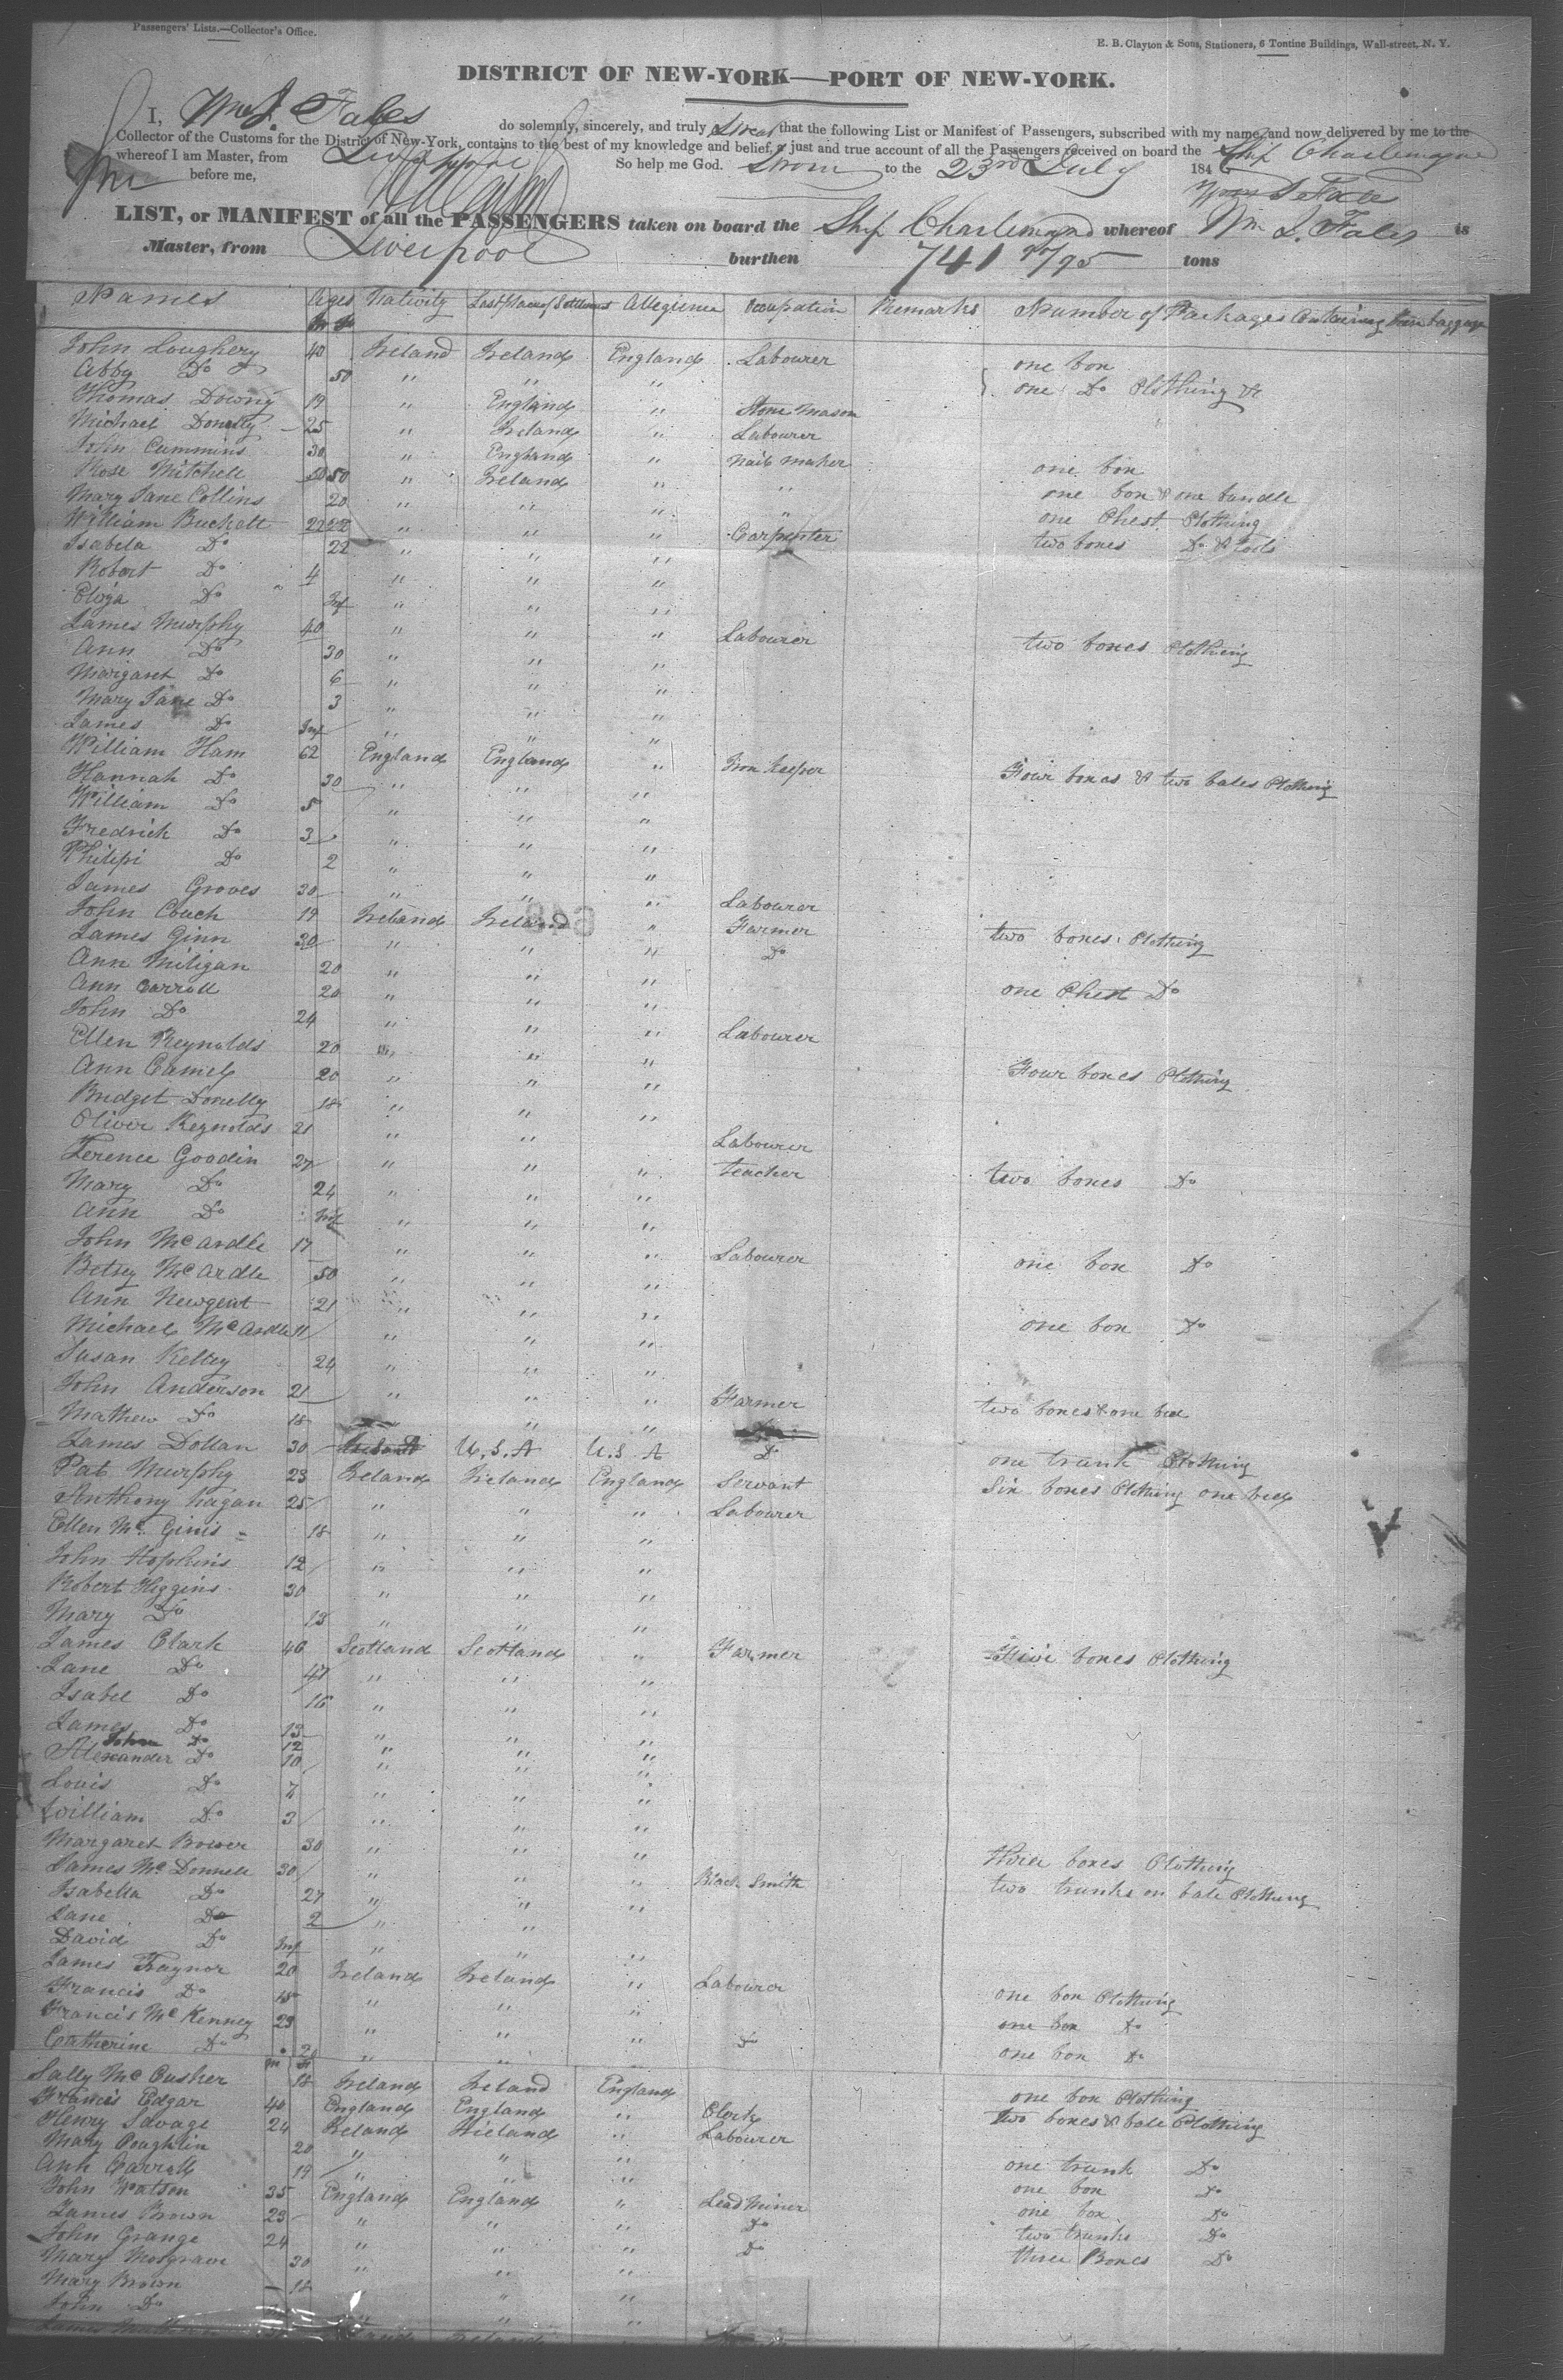 Passengers' Lists.—Collector's Office.
E. B. Clayton & Sons, Stationers, 6 Tontine Buildings, Wall-street, N. Y.
DISTRICT OF NEW-YORK—PORT OF NEW-YORK.
I, Wm J. Fales do solemnly, sincerely, and truly Swear that the following List or Manifest of Passengers, subscribed with my name, and now delivered by me to the
Collector of the Customs for the District of New-York, contains to the best of my knowledge and belief, a just and true account of all the Passengers received on board the Ship Charlemagne
whereof I am Master, from Liverpool So help me God.
Sworn to the 23rd July 1846
before me, Wm J Fales
LIST, or MANIFEST of all the PASSENGERS taken on board the Ship Charlemagne whereof Wm J. Fales is
Master, from Liverpool burthen 741 /95 tons
Names Ages Nativity Last place of Settlement Allegience Occupation Remarks Number of Packages Containing their baggage
John Loughery 40 Ireland Ireland England Labourer one box
Abby Do 50 " " " one Do Clothing &c
Thomas Downy 19 " England " Stone Mason
Michael Donelly 25 " Ireland " Labourer
John Cummins 30 " England " Nail maker one box
Rose Mitchell 50 " Ireland " " one box & one bundle
Mary Jane Collins 20 " " " " one Chest Clothing
William Buchett 22 " " " Carpenter two boxes Do & tools
Isabela Do 22 " " "
Robert Do 4 " " "
Eliza Do Inf " " "
James Murphy 40 " " " Labourer two boxes Clothing
Ann Do 30 " " "
Margaret Do 6 " " "
Mary Jane Do 3 " " "
James Do Inf " " "
William Ham 62 England England " Four boxes & two bales Clothing
Hannah Do 30 " " "
William Do 5 " " "
Fredrick Do 3 " " "
Philipi Do 2 " " "
James Groves 30 " " " Labourer
John Couch 19 Ireland Ireland " Farmer two boxes Clothing
James Ginn 30 " " " Do
Ann Miligan 20 " " "
Ann Carroll 20 " " " one Chest Do
John Do 24 " " " Labourer
Ellen Reynolds 20 " " "
Ann Camely 20 " " " Four boxes Clothing
Bridget Donelly 18 " " "
Oliver Reynolds 21 " " Labourer
Terence Goodin 27 " " " teacher two boxes Do
Mary Do 24 " " "
Ann Do Inf " " "
John McArdle 17 " " " Labourer one box Do
Betsey McArdle 50 " " "
Ann Newgent 21 " " "
Michael McArdle 11 " " " one box Do
Susan Kelley 24 " " "
John Anderson 21 " " " Farmer two boxes & one bed
Mathew Do 18 " " "
James Dollan 30 U.S.A U.S A Do one trunk Clothing
Pat Murphy 23 Ireland Ireland England Servant Six boxes Clothing one bed
Anthony Kagan 25 " " " Labourer
Ellen Mc Ginis 18 " " "
John Hopkins 12 " " "
Robert Higgins 30 " " "
Mary Do 13 " " "
James Clark 46 Scotland Scotland " Farmer Five boxes Clothing
Jane Do 47 " " "
Isabel Do 16 " " "
James Do 13 " " "
John Do 12 " " "
Alexander Do 10 " " "
Louis Do 7 " " "
William Do 3 " " "
Margaret Bower 30 " " " Three boxes Clothing
James McDonnell 30 " " " Black Smith two trunks on bale Clothing
Isabella Do 27 " " "
Jane Do 2 " "
David Do Inf " " "
James Traynor 20 Ireland Ireland " Labourer one box Clothing
Francis Do 18 " " " one box Do
Francis McKenney 23 " " " Do one box Do
Catherine Do " "
Sally McCusher 18 Ireland Ireland England one box Clothing
Francis Edgar 40 England England " Clerk two boxes & bale Clothing
Henry Savage 24 Ireland Ireland " Labourer
Mary Coughlin 20 " " " one trunk Do
Ann Carroll 19 " " " one box Do
John Watson 35 England England " Lead Miner one box Do
James Brown 23 " " " Do two trunks Do
John Grange 24 " " " Do three Boxes Do
Mary Mosgrave 30 " " "
Mary Brown 18 " " "
John Do " "